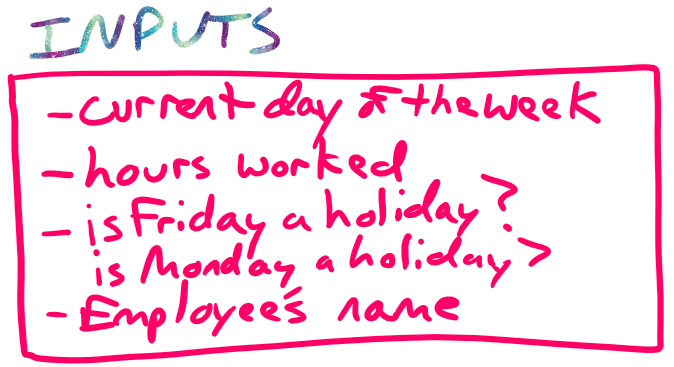 INPUTS
- current day of the week
- hours worked
- is Friday a holiday?
is Monday a holiday?
- Employee's name